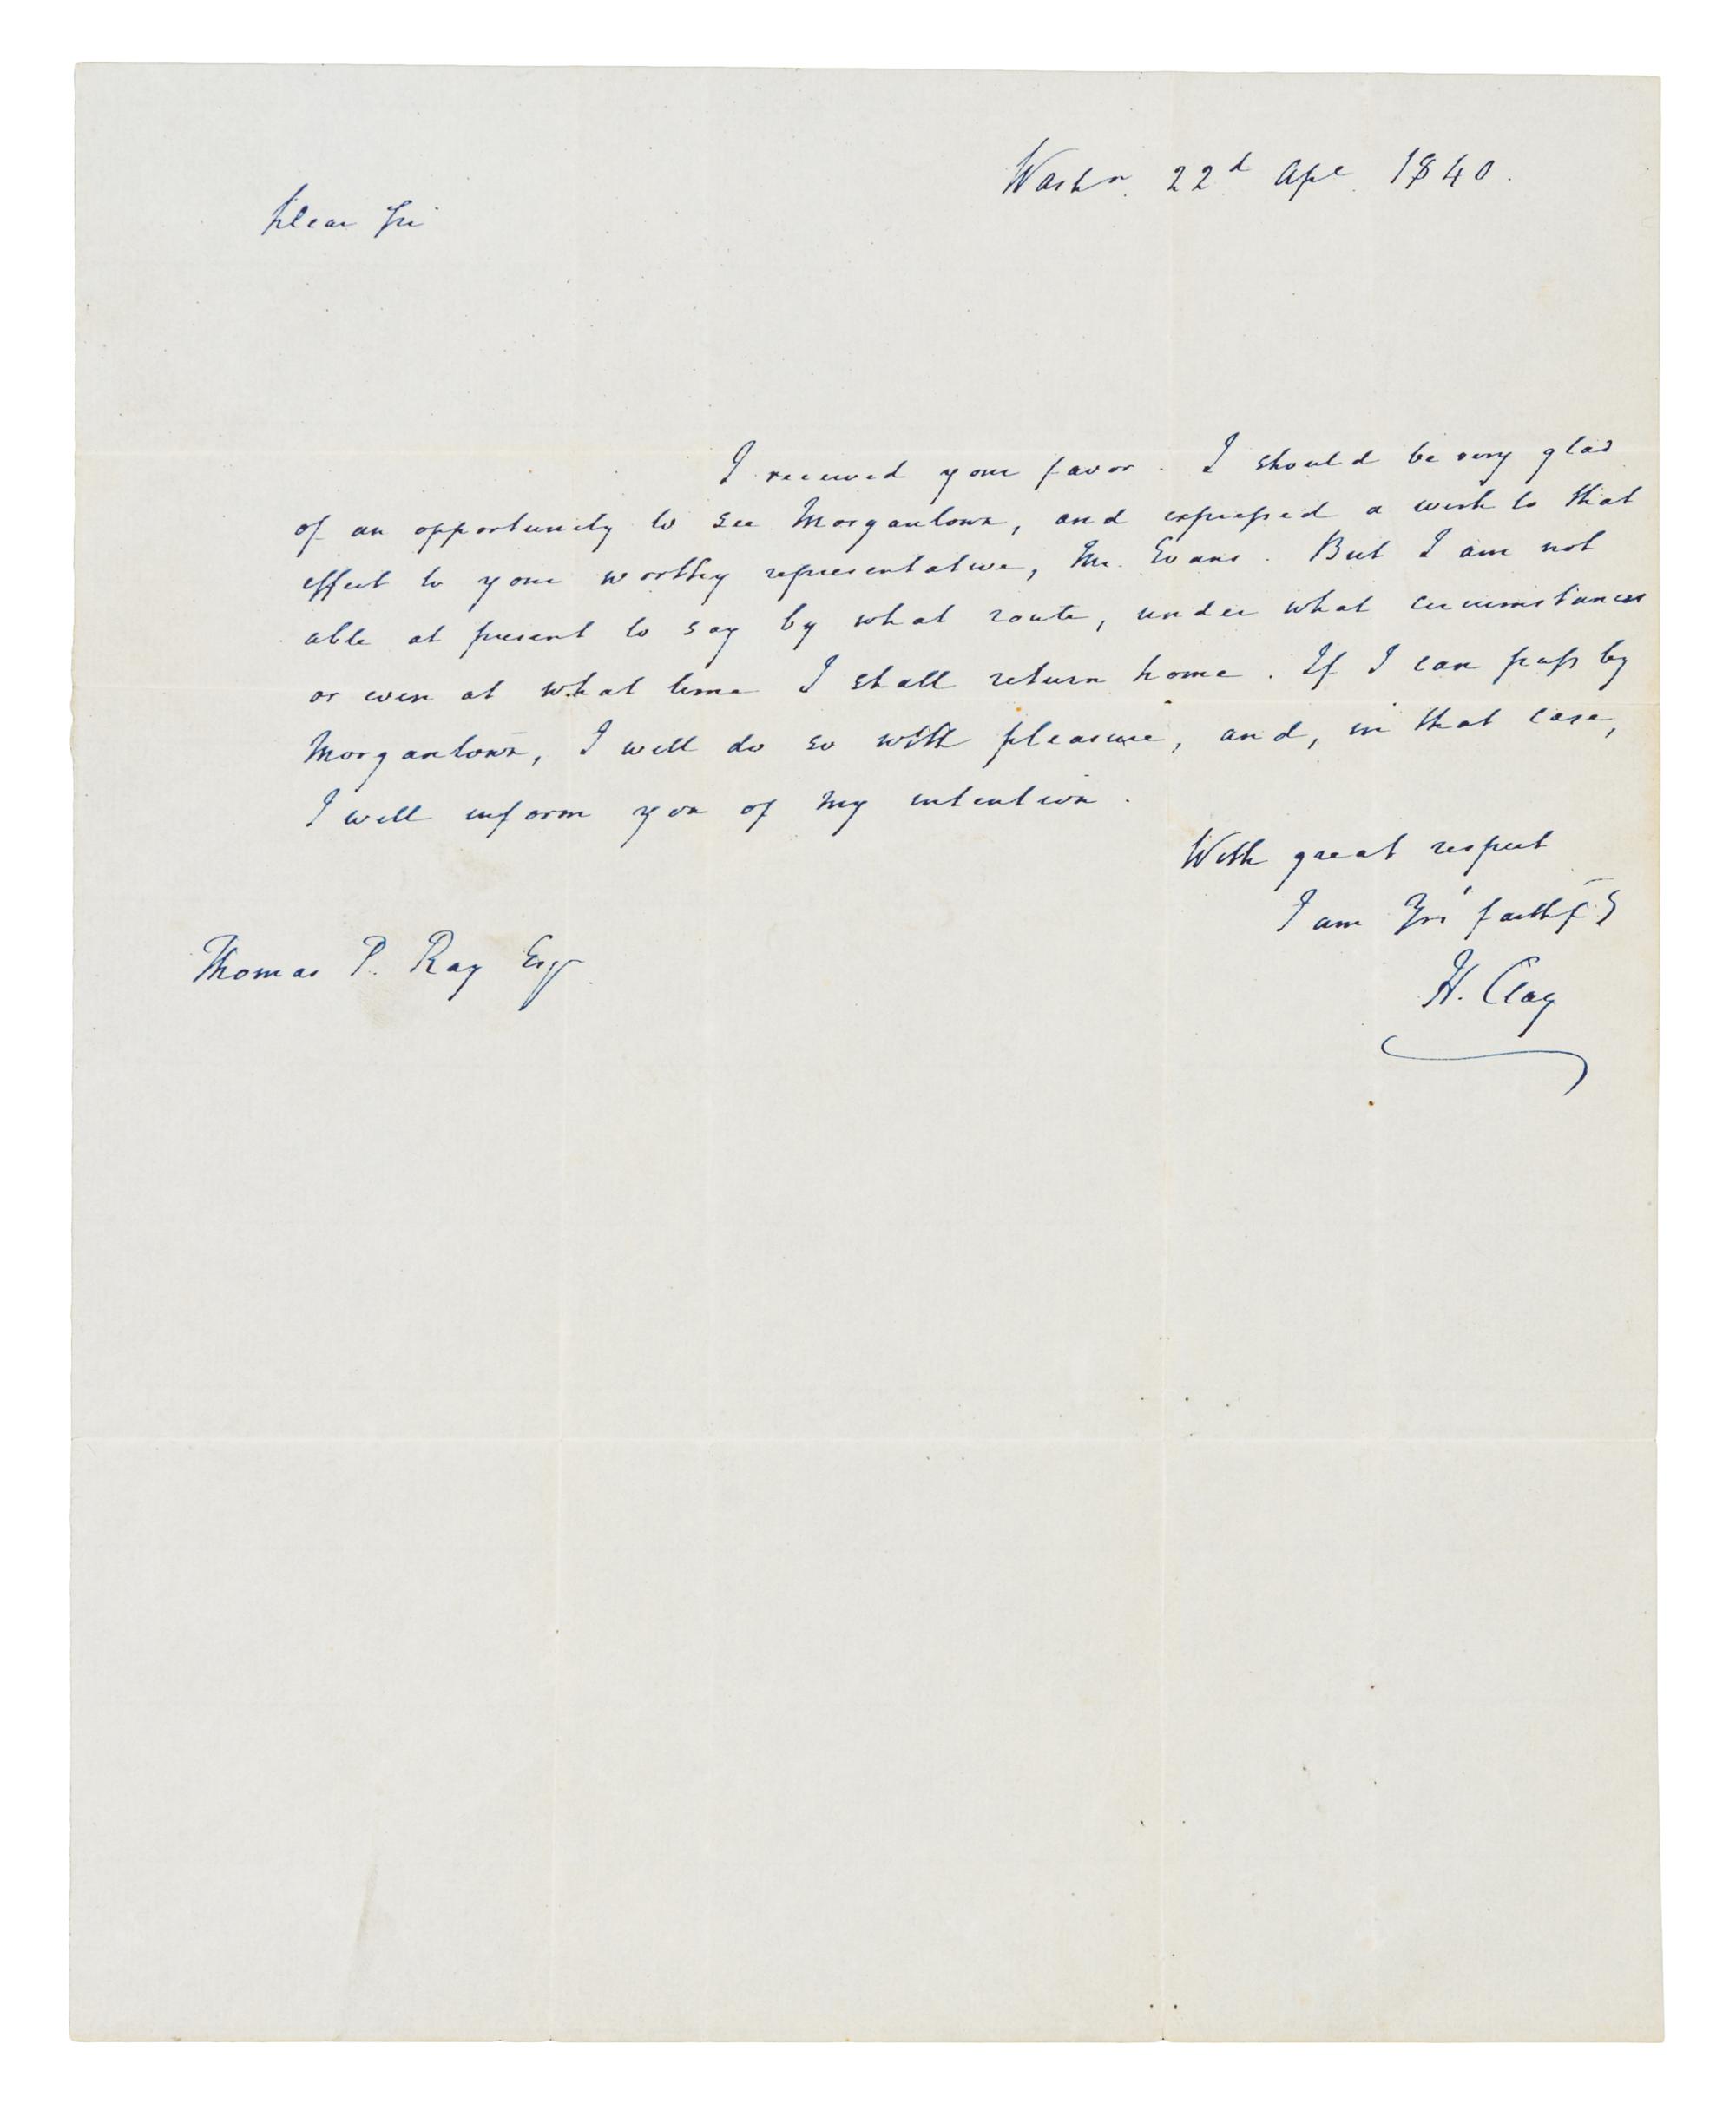 Washn. 22d Apl 1840.
Dear Sir
I received your favor. I should be very glad
of an opportunity to see Morgantown, and expressed a wish to that
effect to your worthy representative, Mr. Evans. But I am not
able at present to say by what route, under what circumstances
or even at what time I shall return home. If I can pass by
Morgantown, I will do so with pleasure, and, in that case,
I will inform you of my intention.
With great respect
I am Yrs faithfy
Thomas P. Ray Esqr
H. Clay